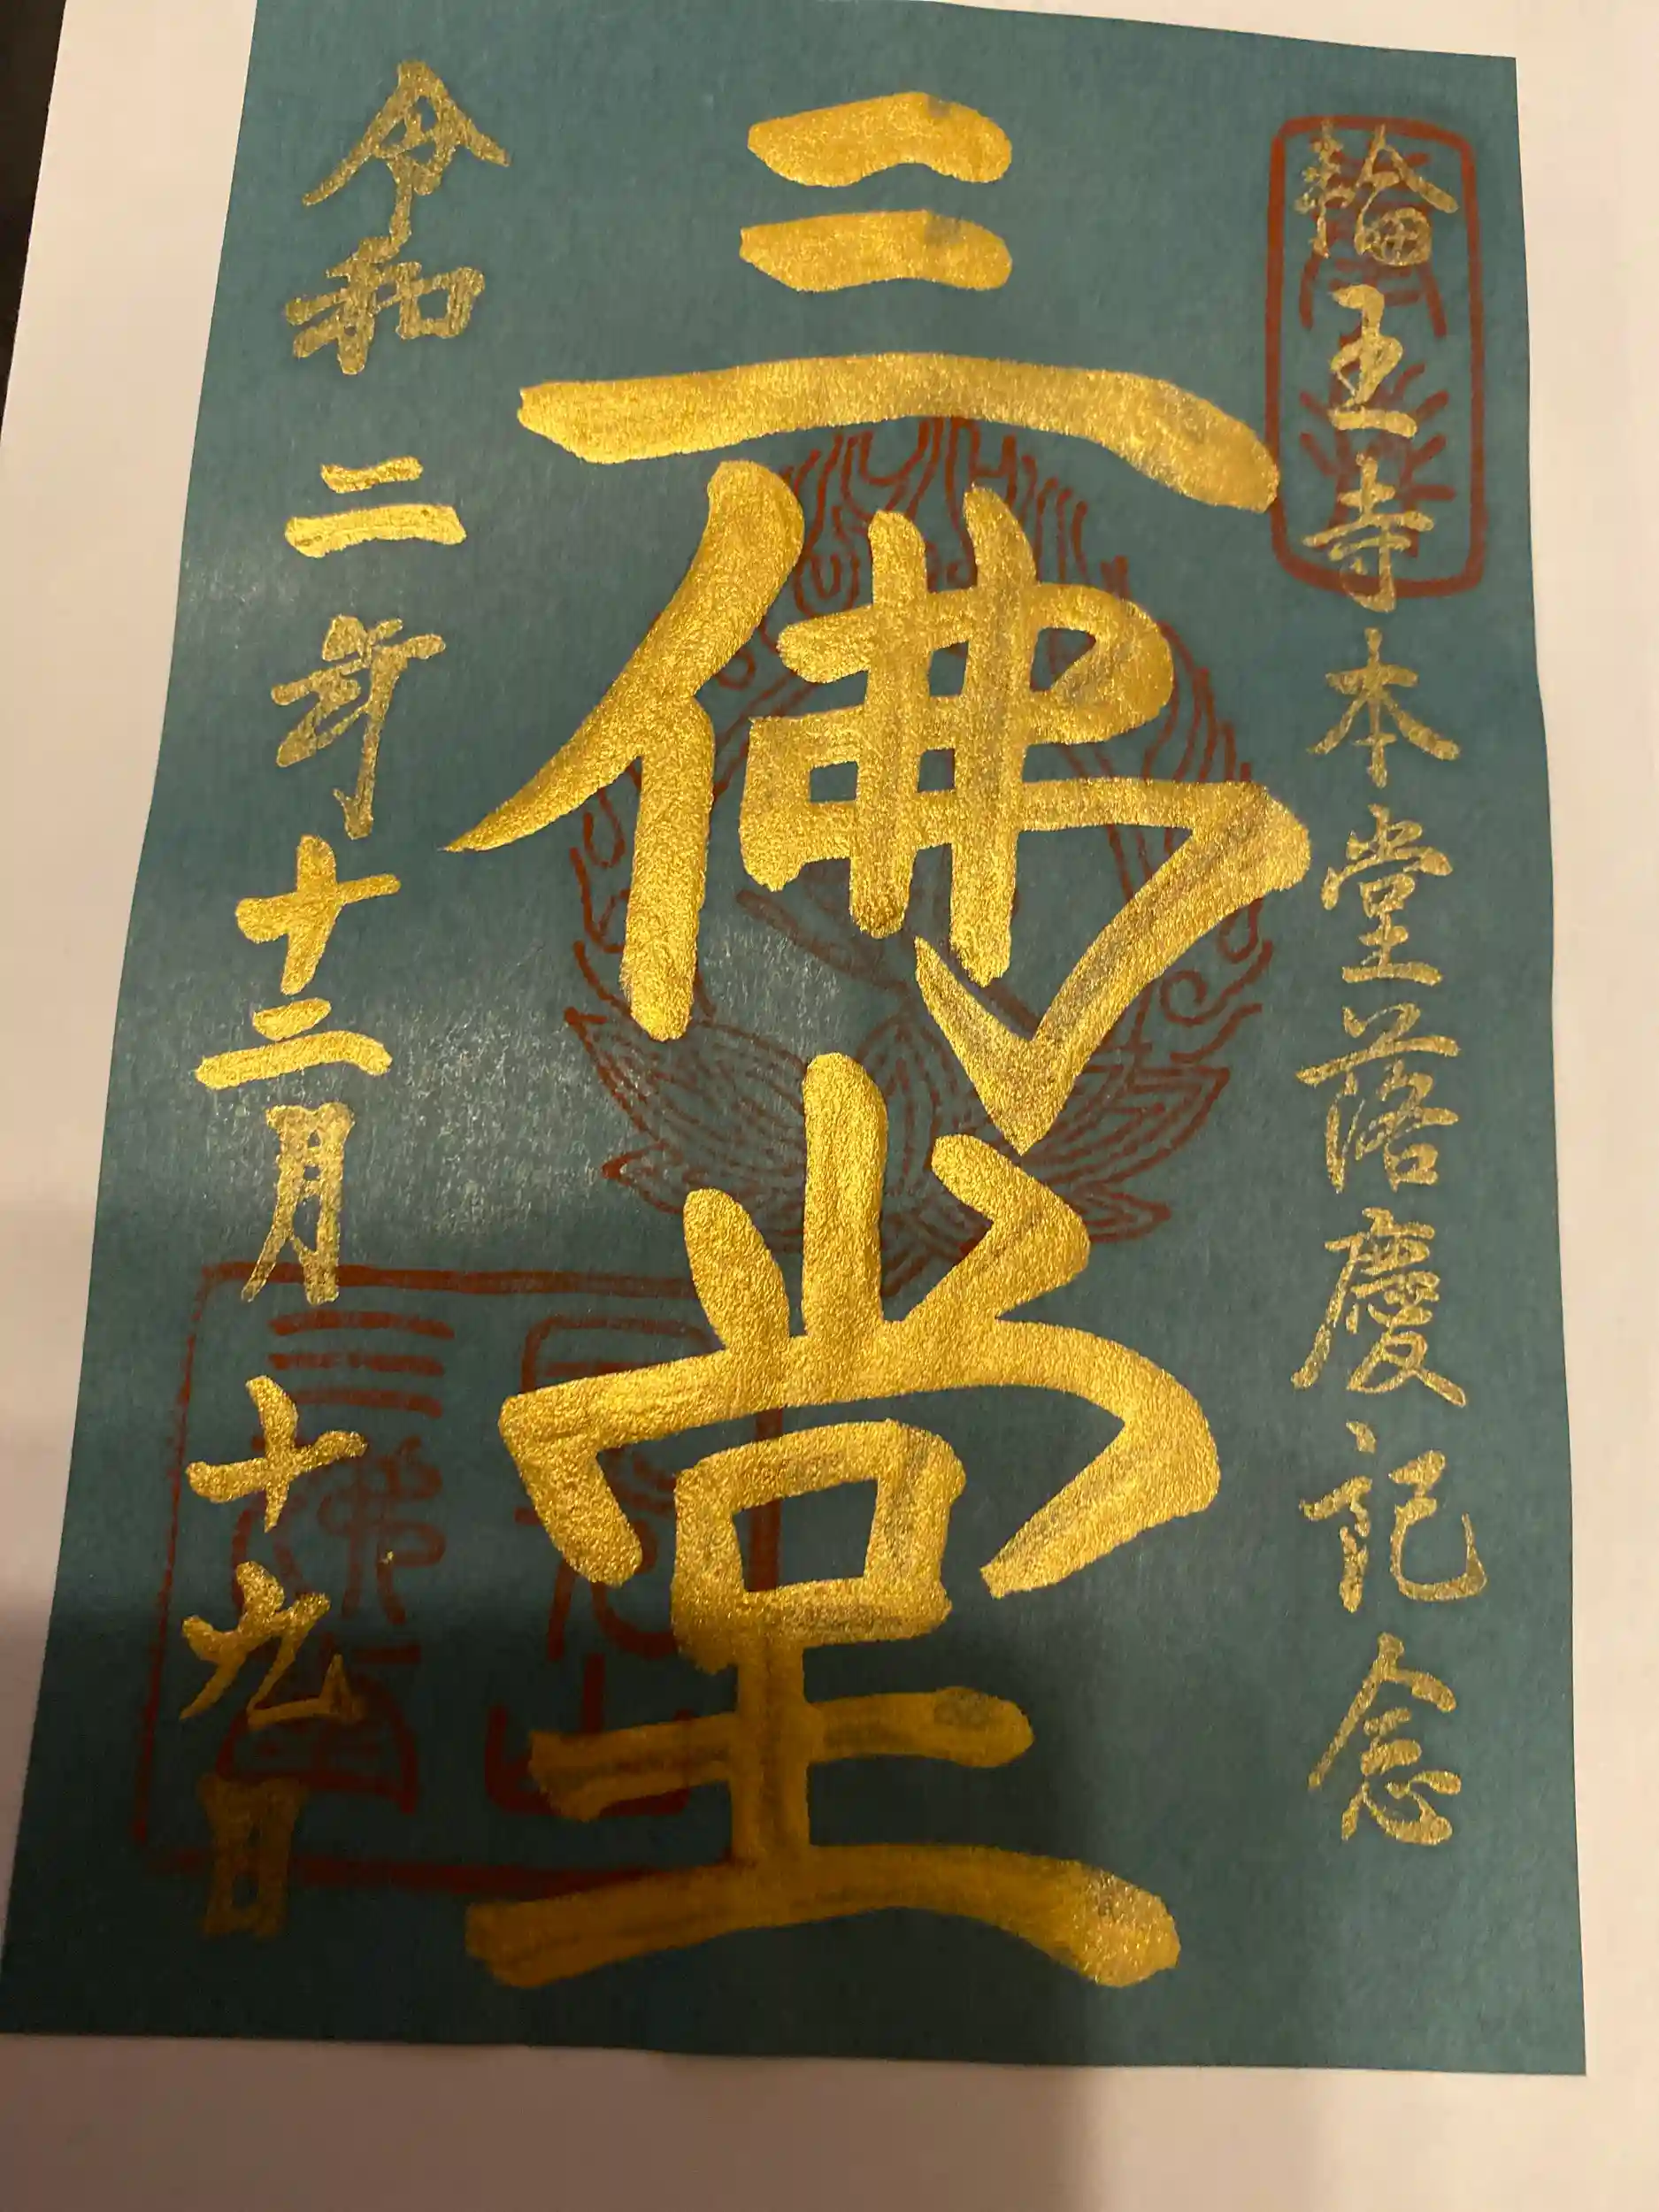 輪王寺本堂落慶記念
三佛堂
令和二年十二月十九日
日光山
三佛堂